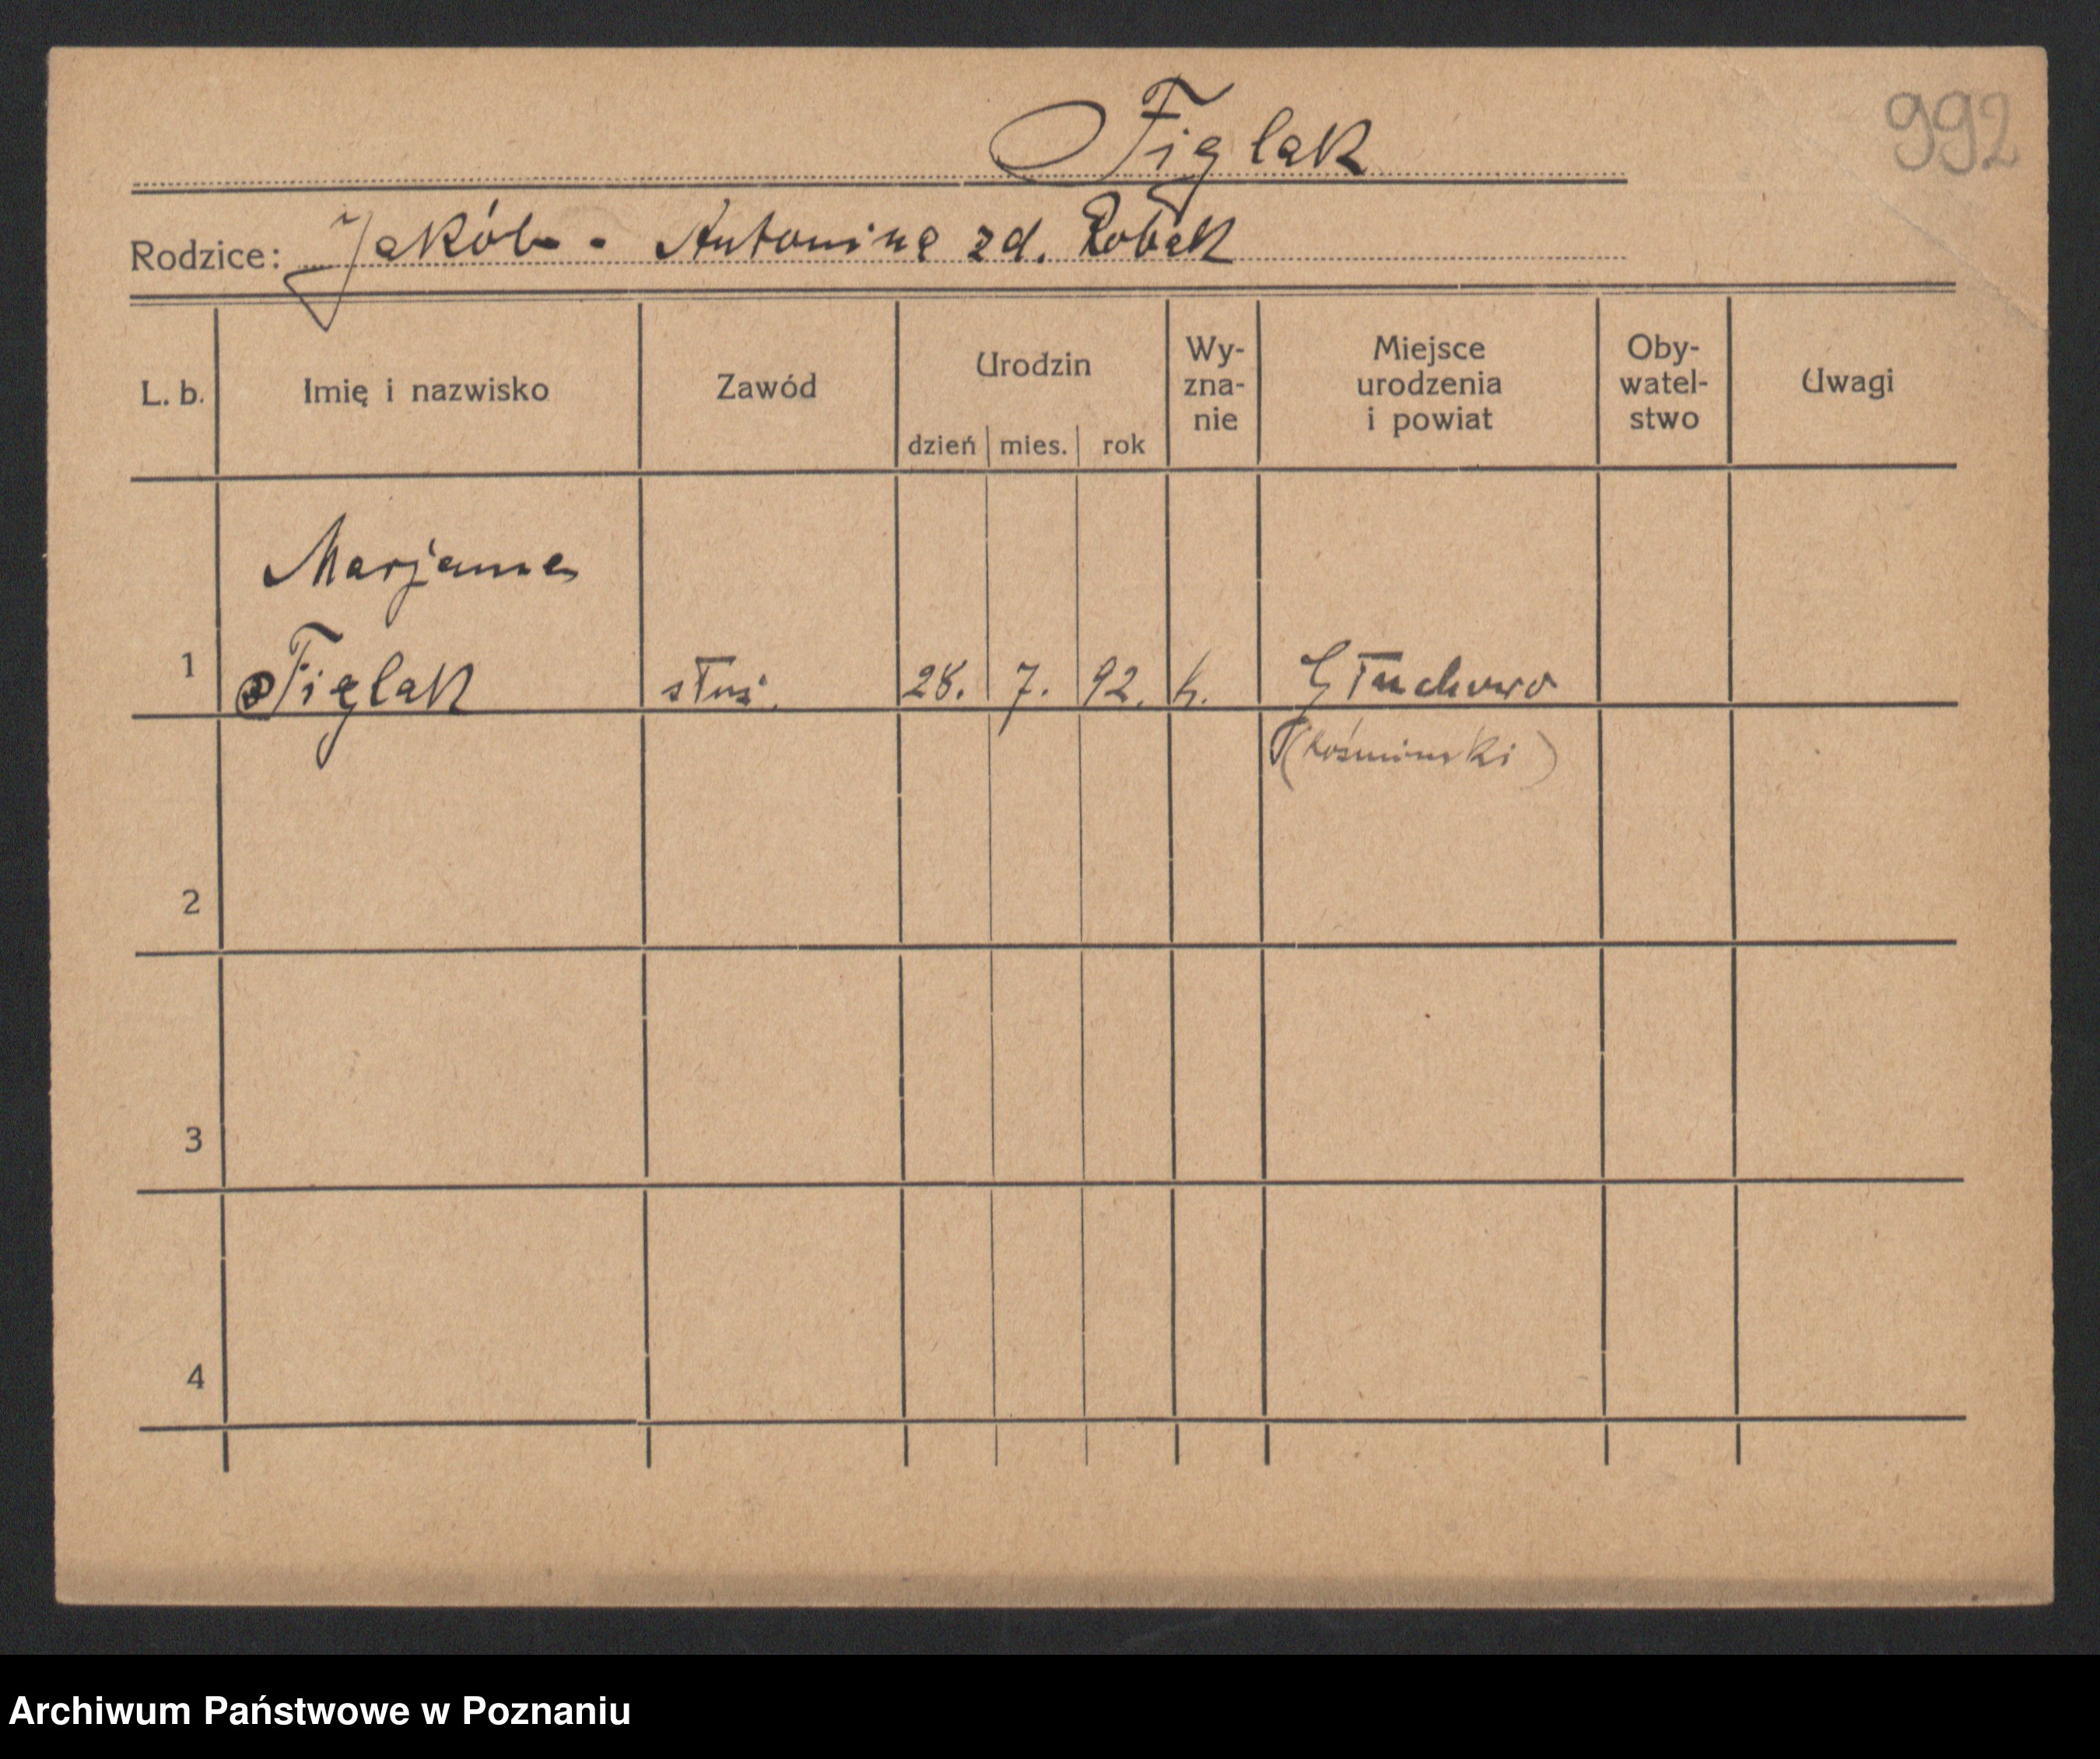 Figlak
992
Rodzice: Jakób - Antonina zd. Robak
L. b. Imię i nazwisko Zawód Urodzin dzień mies. rok Wy-zna-nie Miejsce urodzenia i powiat Oby-watel-stwo Uwagi
Marjanna
1 Figlak służ. 28. 7. 92. k. Głuchowo
(kośmiński)
2
3
4
Archiwum Państwowe w Poznaniu